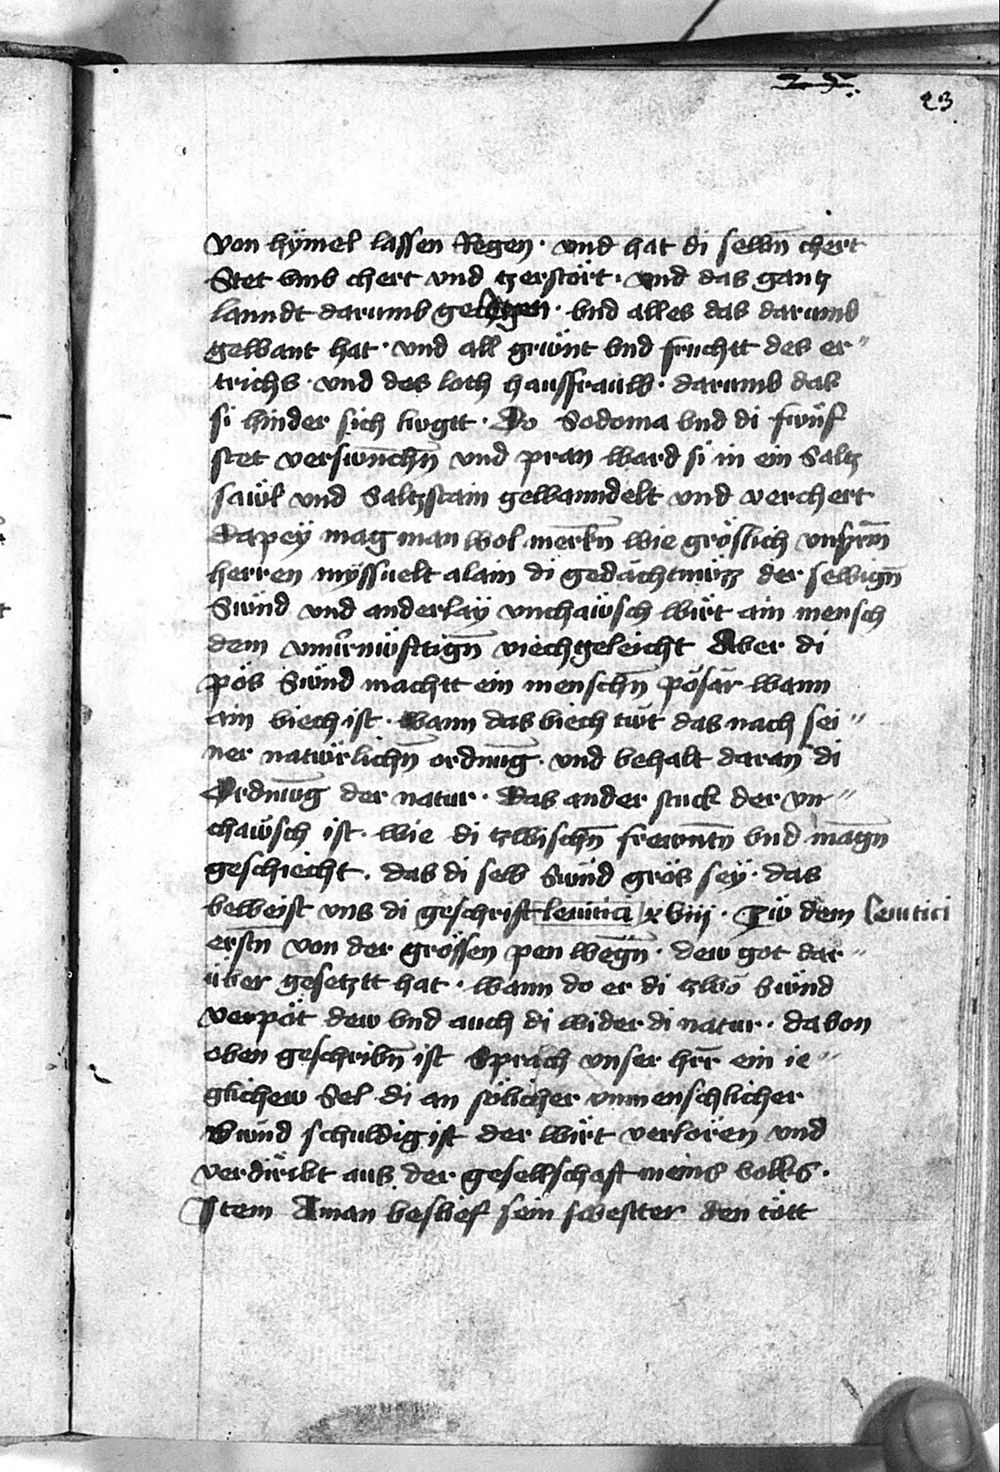 25
23
von hÿmel lassen Regen · vnd hat di selbn̄ chert
Stet vmb chert vnd tzerstört · vnd das gantz
lanndt darumb gelegen · vnd alles das darumb
gewant hat · vnd all grüönt vnd fruchtt des er-
trichs · vnd des loth haussfrauͤw · darumb das
si hinder sich luogtt · Do Sodoma vnd di fwͤnf
stet verswnchn̄ vnd pran ward si in ein Saltz
sawͤl vnd Saltzstain gewanndelt vnd verchert
Dapeÿ mag man wol merkn̄ wie gröslich vnserm̄
herren mÿssuelt alain di gedächtnwͤzz der selbign̄
Swͤnd vnd anderlaÿ vnchawͤsch wirt ain mensch
dem vnuernwͤfttign̄ viech geleicht Aber di
pös Swͤnd machtt ein menschn̄ pösär wann
ain viech ist · wann das viech twͤt das nach sei-
ner natwͤrlichn̄ ordnwng · vnd behalt daran di
Ordnwng der natur · Das ander stuck der vn-
chawͤsch ist · wie di tzwischn̄ frewntn̄ vnd magn̄
geschiecht · das di selb Swͤnd grös seÿ · das
beweist vns di geschrift leuitici xviij · Tzw dem leuitici
erstn̄ von der grössen pen wegn̄ · dew got dar-
über gesetztt hat · wann do er di tzwo Swͤnd
verpöt dew vnd auch di wider di natur · dauon
oben geschribn̄ ist Sprach vnser herr ein ie-
glichew Sel di an sölicher vnmenschlicher
Swͤnd schuldig ist der wirt verloren vnd
verdiribt aus der gesellschaft meins volks ·
Item Aman beslief sein swestter den tött